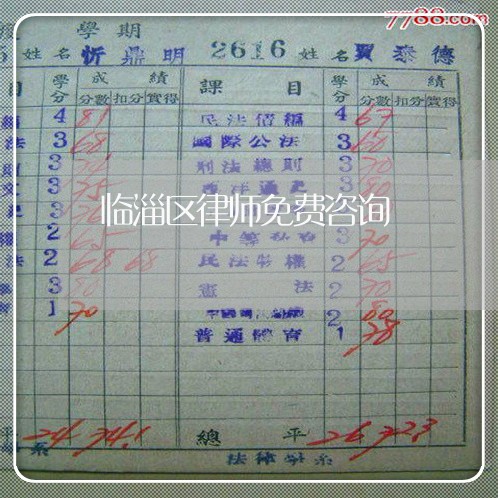 7788.com
學期
姓名 忻鼎明 2616 姓名 賈泰德
目 學分 成績 課目 學分 成績
分數 扣分 實得 分數 扣分 實得
4 81 民法債編 4 67
法 3 68 國際公法 3 60
3 刑法總則 3 70
3 75 西洋通史 3 80
3
臨淄区律师免费咨询
2 65 3 70
法 2 68 68 民法物權 2 65
3 80 憲法 2 70
1 70 2 80
普通體育 1 78
平 24 74.1 總平 26 72.3
系 法律學系